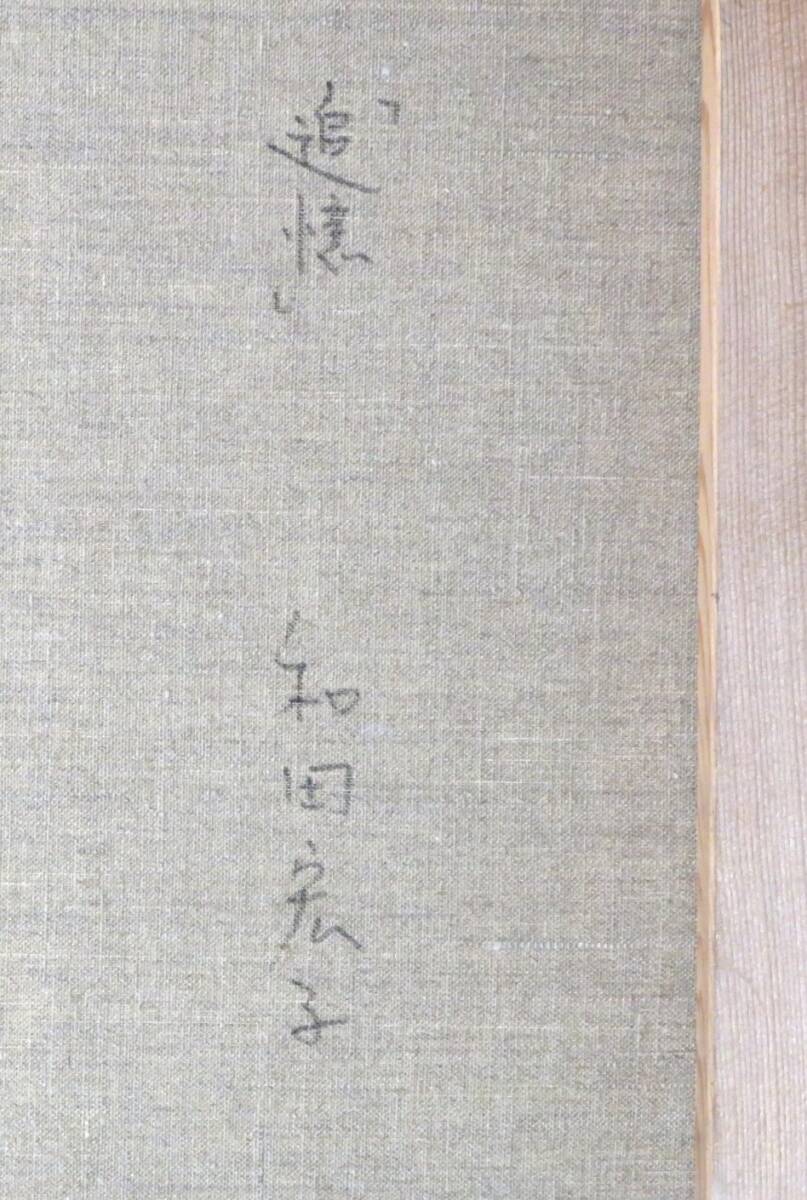 「追憶」
和田宏子